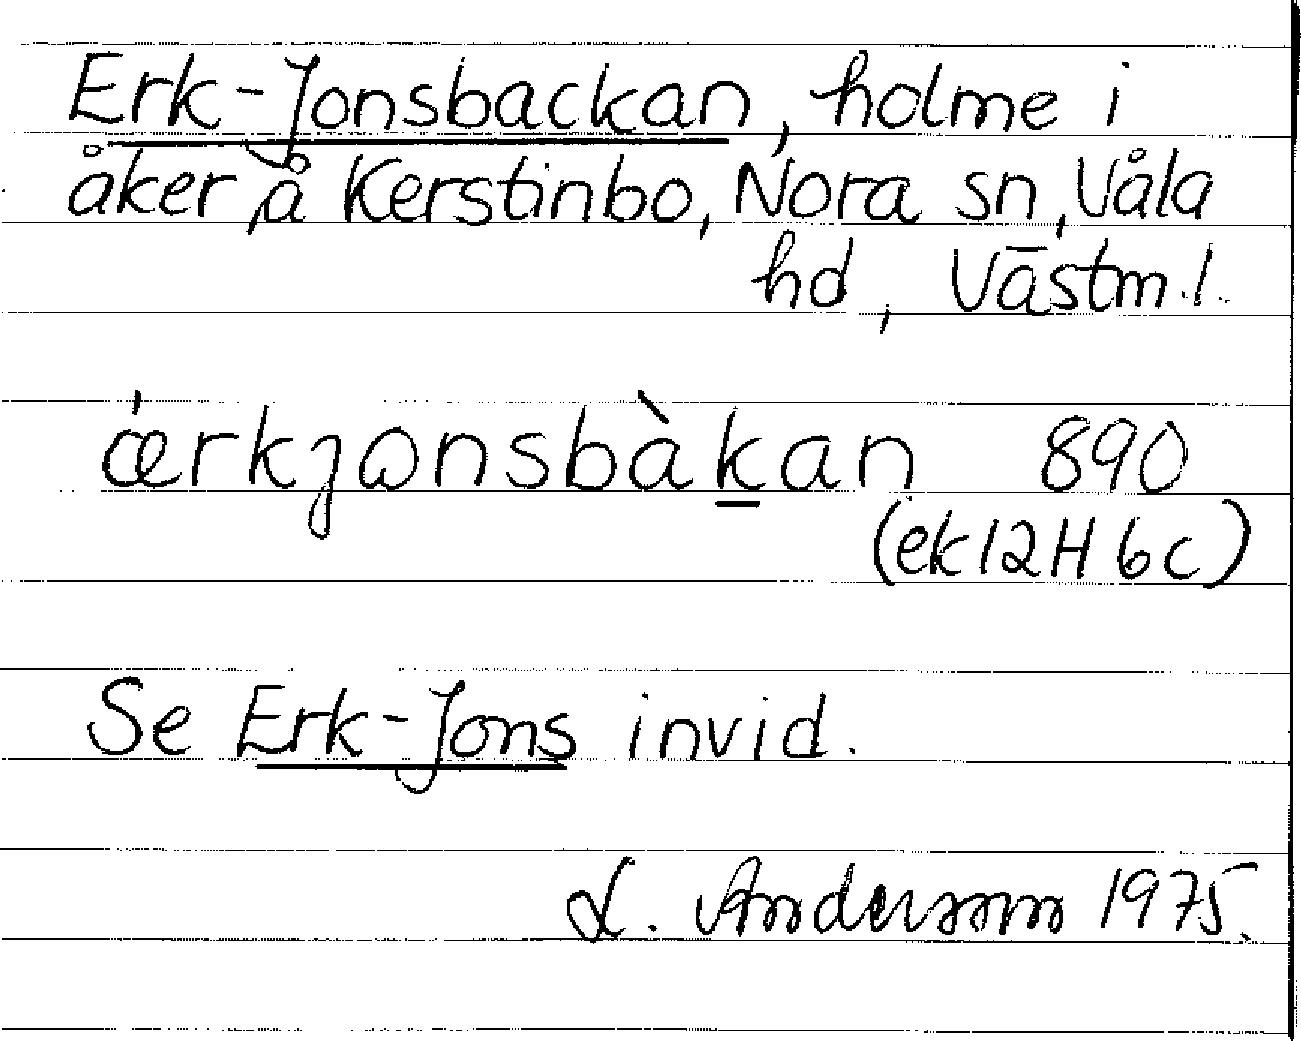 Erk-Jonsbackan, holme i
åker, å Kerstinbo, Nora sn, Våla
hd, Västm.l.
ǽrkjωnsbàkan 890
(ek 12H 6c)
Se Erk-Jons invid.
L. Andersson 1975.